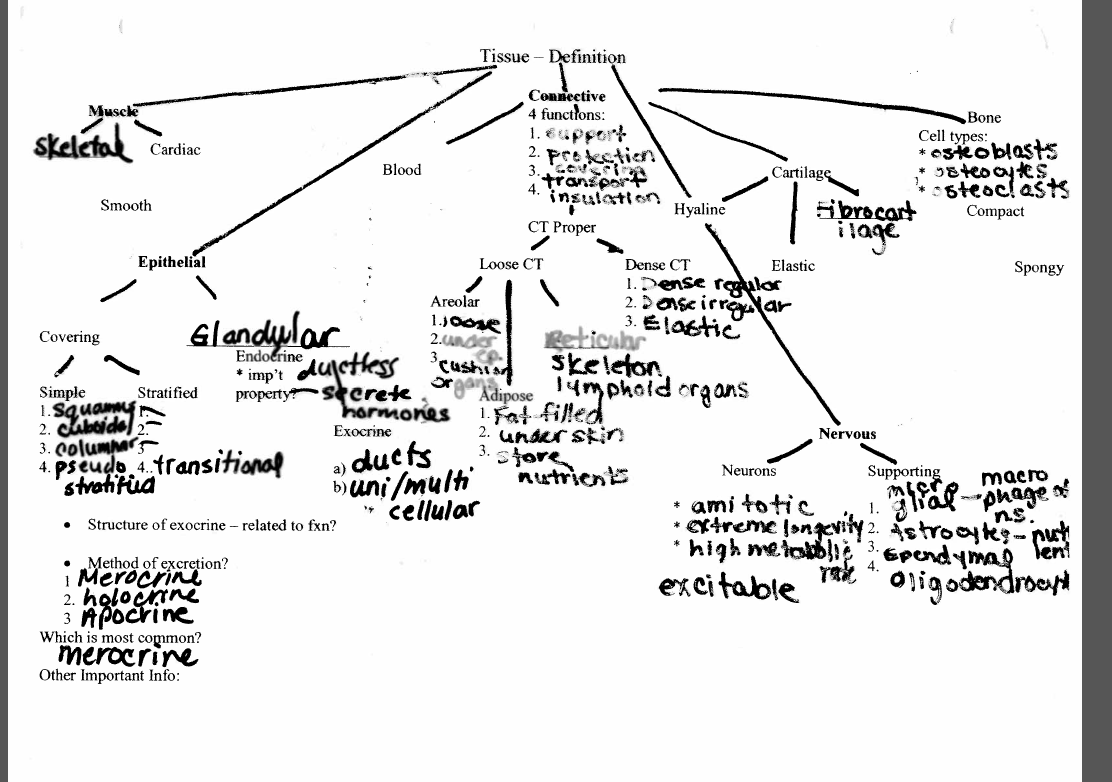 Tissue – Definition
Muscle
Skeletal
Cardiac
Smooth
Connective
4 functions:
1. support
2. protection
3. covering
transport
4. insulation
Blood
Bone
Cell types:
* osteoblasts
* osteocytes
* osteoclasts
Compact
Spongy
Cartilage
Hyaline
Elastic
Fibrocart
ilage
CT Proper
Loose CT
Dense CT
1. Dense regular
2. Dense irregular
3. Elastic
Areolar
1. loose
2. under
ep.
3 cushion
organs
Reticular
skeleton
lymphoid organs
Adipose
1. Fat-filled
2. under skin
3. store
nutrients
Epithelial
Covering
Glandular
Simple
1. Squamus
2. cuboidal
3. columnar
4. pseudo
stratified
Stratified
1.
2.
3
4.. transitional
Endocrine
* imp't ductless
property? secrete
hormones
Exocrine
a) ducts
b) uni/multi
cellular
• Structure of exocrine – related to fxn?
• Method of excretion?
1 Merocrine
2. holocrine
3 Apocrine
Which is most common?
merocrine
Other Important Info:
Nervous
Neurons
* amitotic
* extreme longevity
* high metabolic
rate
excitable
Supporting
micro macro
1. glial – phage of
ns.
2. Astrocytes – nut
3. Ependymal ient
4. Oligodendrocyt